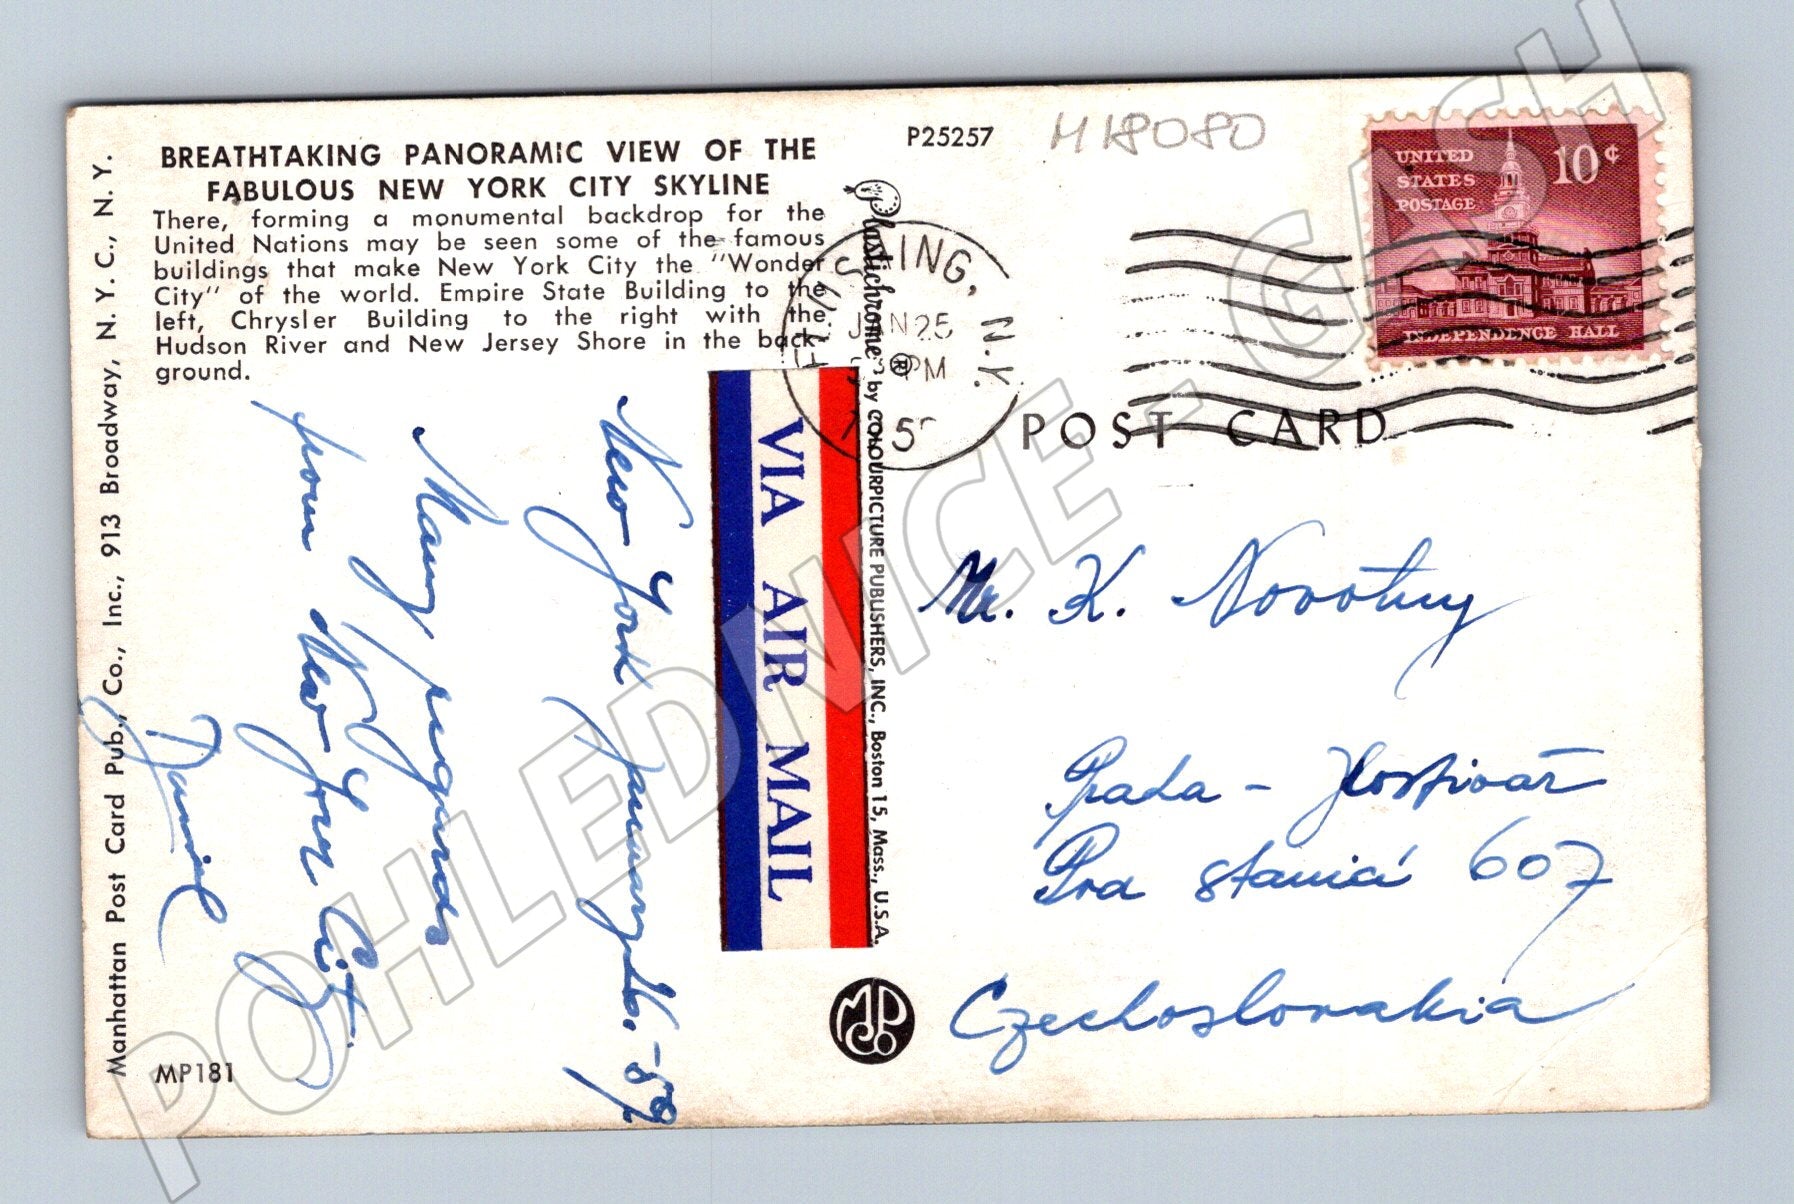 BREATHTAKING PANORAMIC VIEW OF THE
FABULOUS NEW YORK CITY SKYLINE
There, forming a monumental backdrop for the
United Nations may be seen some of the famous
buildings that make New York City the "Wonder
City" of the world. Empire State Building to the
left, Chrysler Building to the right with the
Hudson River and New Jersey Shore in the back-
ground.
Manhattan Post Card Pub., Co., Inc., 913 Broadway, N. Y. C., N. Y.
MP181
New York January 26.-59
Many regards
from New York City
Daniel
VIA AIR MAIL
Plastichrome® by COLOURPICTURE PUBLISHERS, INC., Boston 15, Mass., U.S.A.
P25257
H18080
N.Y.
25
PM
UNITED
STATES
POSTAGE
10¢
INDEPENDENCE HALL
POST CARD
Mr. K. Novotny
Praha - Hostivař
Pra stanicí 607
Czechoslovakia
MPCo
POHLEDNICE - GASH